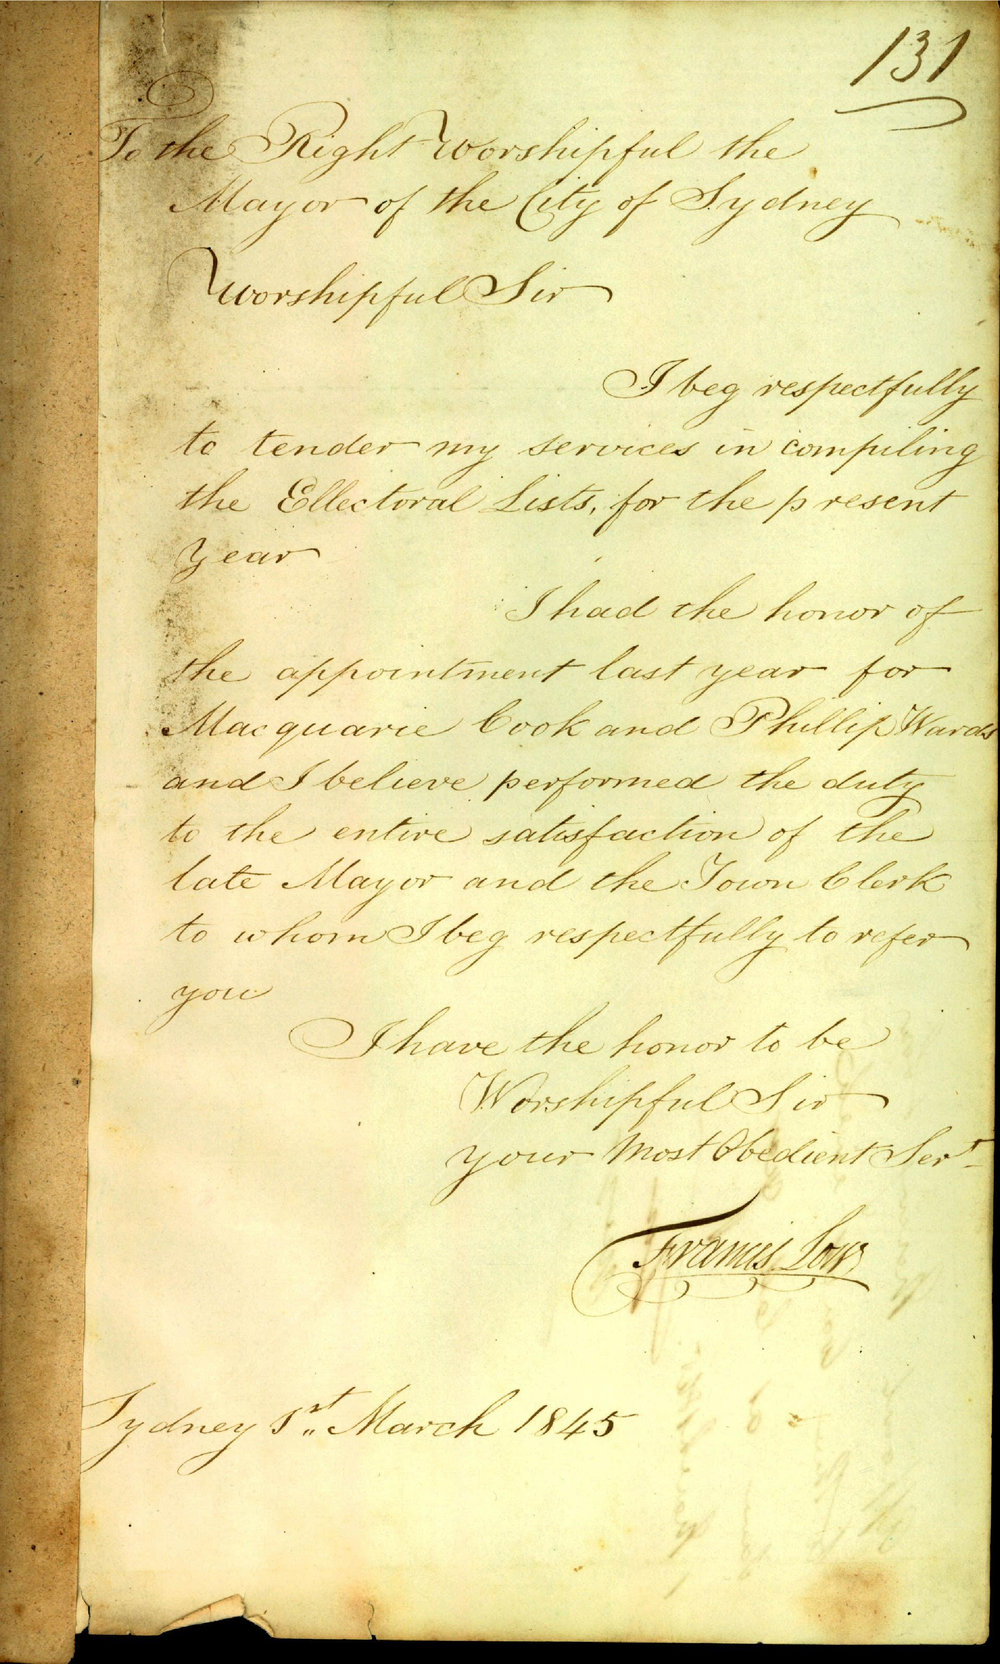 131
To the Right Worshipful the
Mayor of the City of Sydney
Worshipful Sir
I beg respectfully
to tender my services in compiling
the Ellectoral Lists, for the present
year
I had the honor of
the appointment last year for
Macquarie Cook and Phillip Wards
and I believe performed the duty
to the entire satisfaction of the
late Mayor and the Town Clerk
to whom I beg respectfully to refer
you
I have the honor to be
Worshipful Sir
your Most Obedient Sert
Francis Low
Sydney 1st March 1845